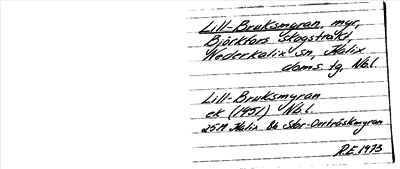 Lill-Bruksmyran, myr,
Björkfors skogstrakt,
Nederkalix sn, Kalix
doms. tg, Nb.l.
Lill-Bruksmyran
ek (1951) Nb.l.
25M Kalix 8b Stor-Orrträskmyran
R.E. 1973